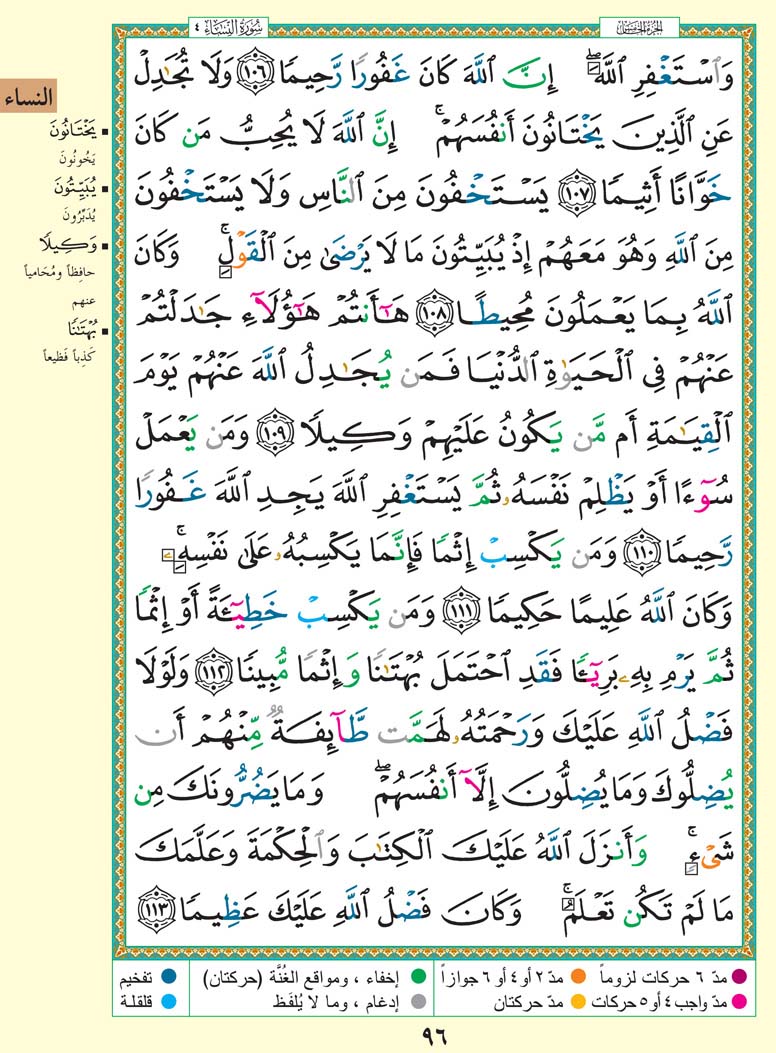 الجزء الخامس
سورة النساء ٤
وَٱسْتَغْفِرِ ٱللَّهَ ۖ إِنَّ ٱللَّهَ كَانَ غَفُورًا رَّحِيمًا ١٠٦ وَلَا تُجَٰدِلْ
عَنِ ٱلَّذِينَ يَخْتَانُونَ أَنفُسَهُمْ ۚ إِنَّ ٱللَّهَ لَا يُحِبُّ مَن كَانَ
خَوَّانًا أَثِيمًا ١٠٧ يَسْتَخْفُونَ مِنَ ٱلنَّاسِ وَلَا يَسْتَخْفُونَ
مِنَ ٱللَّهِ وَهُوَ مَعَهُمْ إِذْ يُبَيِّتُونَ مَا لَا يَرْضَىٰ مِنَ ٱلْقَوْلِ ۚ وَكَانَ
ٱللَّهُ بِمَا يَعْمَلُونَ مُحِيطًا ١٠٨ هَٰٓأَنتُمْ هَٰٓؤُلَآءِ جَٰدَلْتُمْ
عَنْهُمْ فِى ٱلْحَيَوٰةِ ٱلدُّنْيَا فَمَن يُجَٰدِلُ ٱللَّهَ عَنْهُمْ يَوْمَ
ٱلْقِيَٰمَةِ أَم مَّن يَكُونُ عَلَيْهِمْ وَكِيلًا ١٠٩ وَمَن يَعْمَلْ
سُوٓءًا أَوْ يَظْلِمْ نَفْسَهُۥ ثُمَّ يَسْتَغْفِرِ ٱللَّهَ يَجِدِ ٱللَّهَ غَفُورًا
رَّحِيمًا ١١٠ وَمَن يَكْسِبْ إِثْمًا فَإِنَّمَا يَكْسِبُهُۥ عَلَىٰ نَفْسِهِۦ ۚ
وَكَانَ ٱللَّهُ عَلِيمًا حَكِيمًا ١١١ وَمَن يَكْسِبْ خَطِيٓـَٔةً أَوْ إِثْمًا
ثُمَّ يَرْمِ بِهِۦ بَرِيٓـًٔا فَقَدِ ٱحْتَمَلَ بُهْتَٰنًا وَإِثْمًا مُّبِينًا ١١٢ وَلَوْلَا
فَضْلُ ٱللَّهِ عَلَيْكَ وَرَحْمَتُهُۥ لَهَمَّت طَّآئِفَةٌ مِّنْهُمْ أَن
يُضِلُّوكَ وَمَا يُضِلُّونَ إِلَّآ أَنفُسَهُمْ ۖ وَمَا يَضُرُّونَكَ مِن
شَىْءٍ ۚ وَأَنزَلَ ٱللَّهُ عَلَيْكَ ٱلْكِتَٰبَ وَٱلْحِكْمَةَ وَعَلَّمَكَ
مَا لَمْ تَكُن تَعْلَمُ ۚ وَكَانَ فَضْلُ ٱللَّهِ عَلَيْكَ عَظِيمًا ١١٣
النساء
يَخْتَانُونَ
يَخُونُونَ
يُبَيِّتُونَ
يُدَبِّرُونَ
وَكِيلًا
حافِظاً ومُحَامياً
عنهم
بُهْتَٰنًا
كَذِباً فَظِيعاً
مدّ ٦ حركات لزوماً
مدّ ٢ أو ٤ أو ٦ جوازاً
إخفاء ، ومواقع الغُنَّة (حركتان)
تفخيم
مدّ واجب ٤ أو ٥ حركات
مدّ حركتان
إدغام ، وما لا يُلفَظ
قلقلة
٩٦